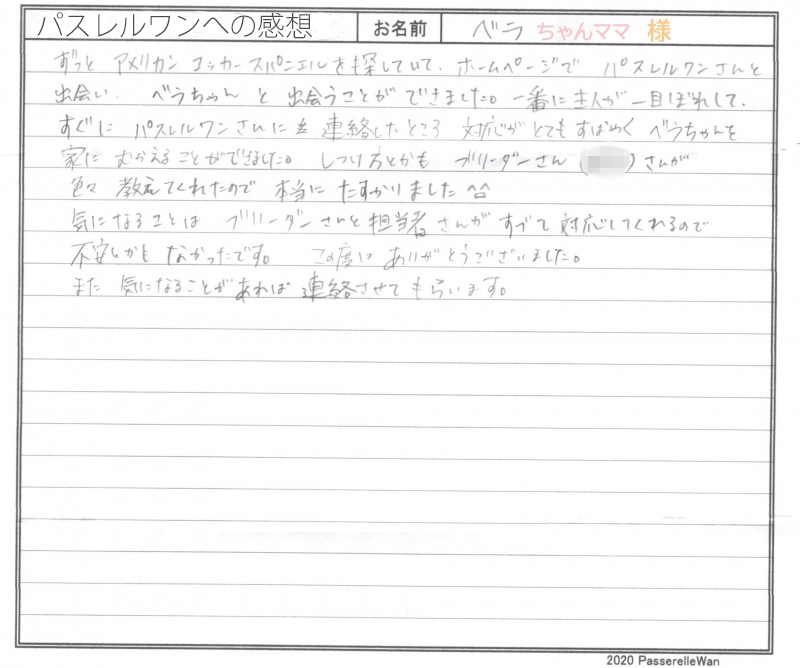 パスレルワンへの感想 お名前 ベラちゃんママ 様
ずっと アメリカン コッカースパニエルを探していて、ホームページで パスレルワンさんと
出会い、 ベラちゃん と 出会うことが できました。一番に主人が一目ぼれして、
すぐに パスレルワンさんに 連絡したところ 対応がとてもすばやく ベラちゃんを
家に むかえることができました。 しつけ方とかも ブリーダーさん ( )さんが
色々 教えてくれたので 本当に たすかりました ^^
気になることは ブリーダーさんと担当者さんが すべて対応してくれるので
不安とかも なかったです。 この度は ありがとうございました。
また 気になることがあれば 連絡させて もらいます。
2020 PasserelleWan